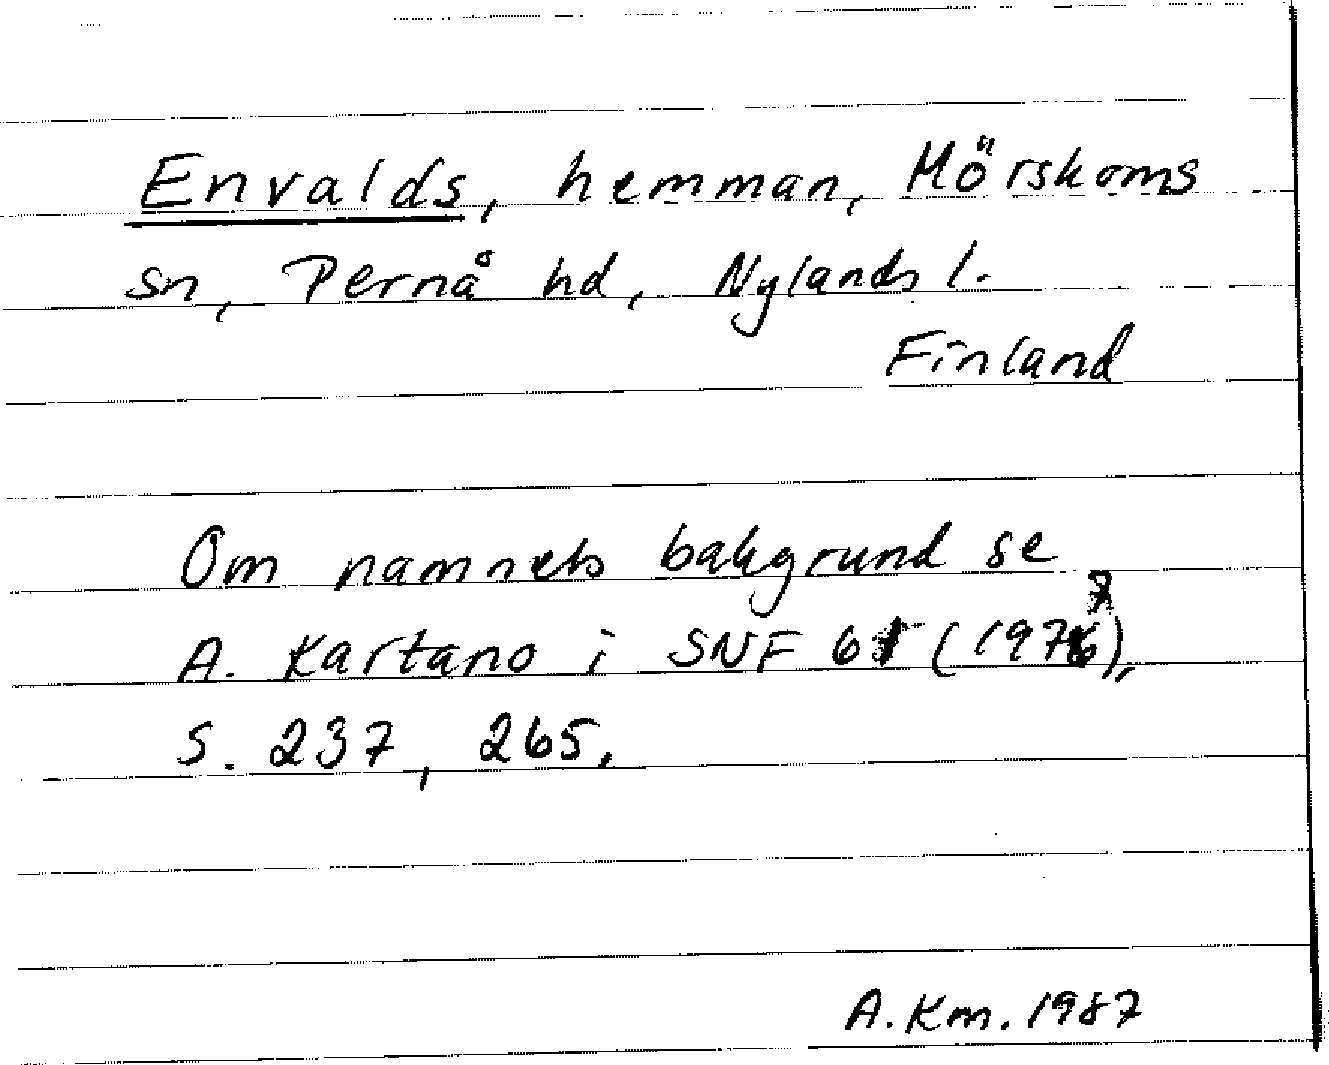 Envalds, hemman, Mörskoms
sn, Pernå hd, Nylands l.
Finland
Om namnets bakgrund se
A. Kartano i SNF 61 (1977),
s. 237, 265.
A.Km. 1987